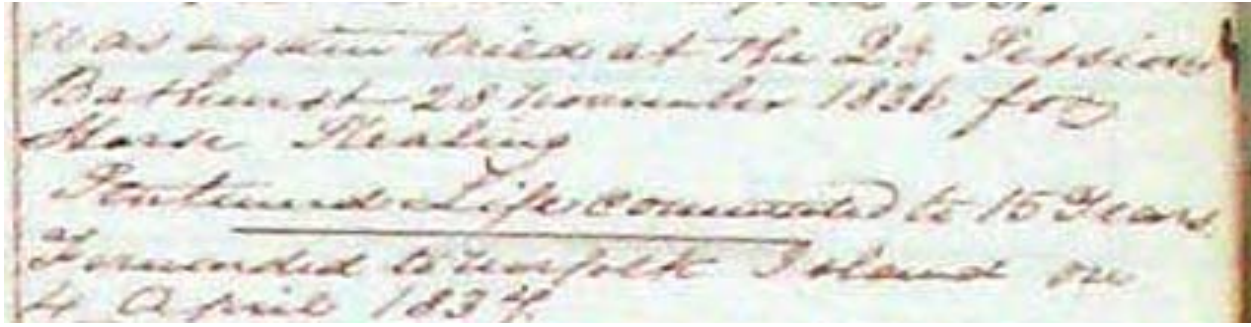 Was again tried at the Qr Sessions
Bathurst 28 November 1836 for
Horse Stealing
Sentenced Life commuted to 15 Years
Forwarded to Norfolk Island on
4 April 1837.